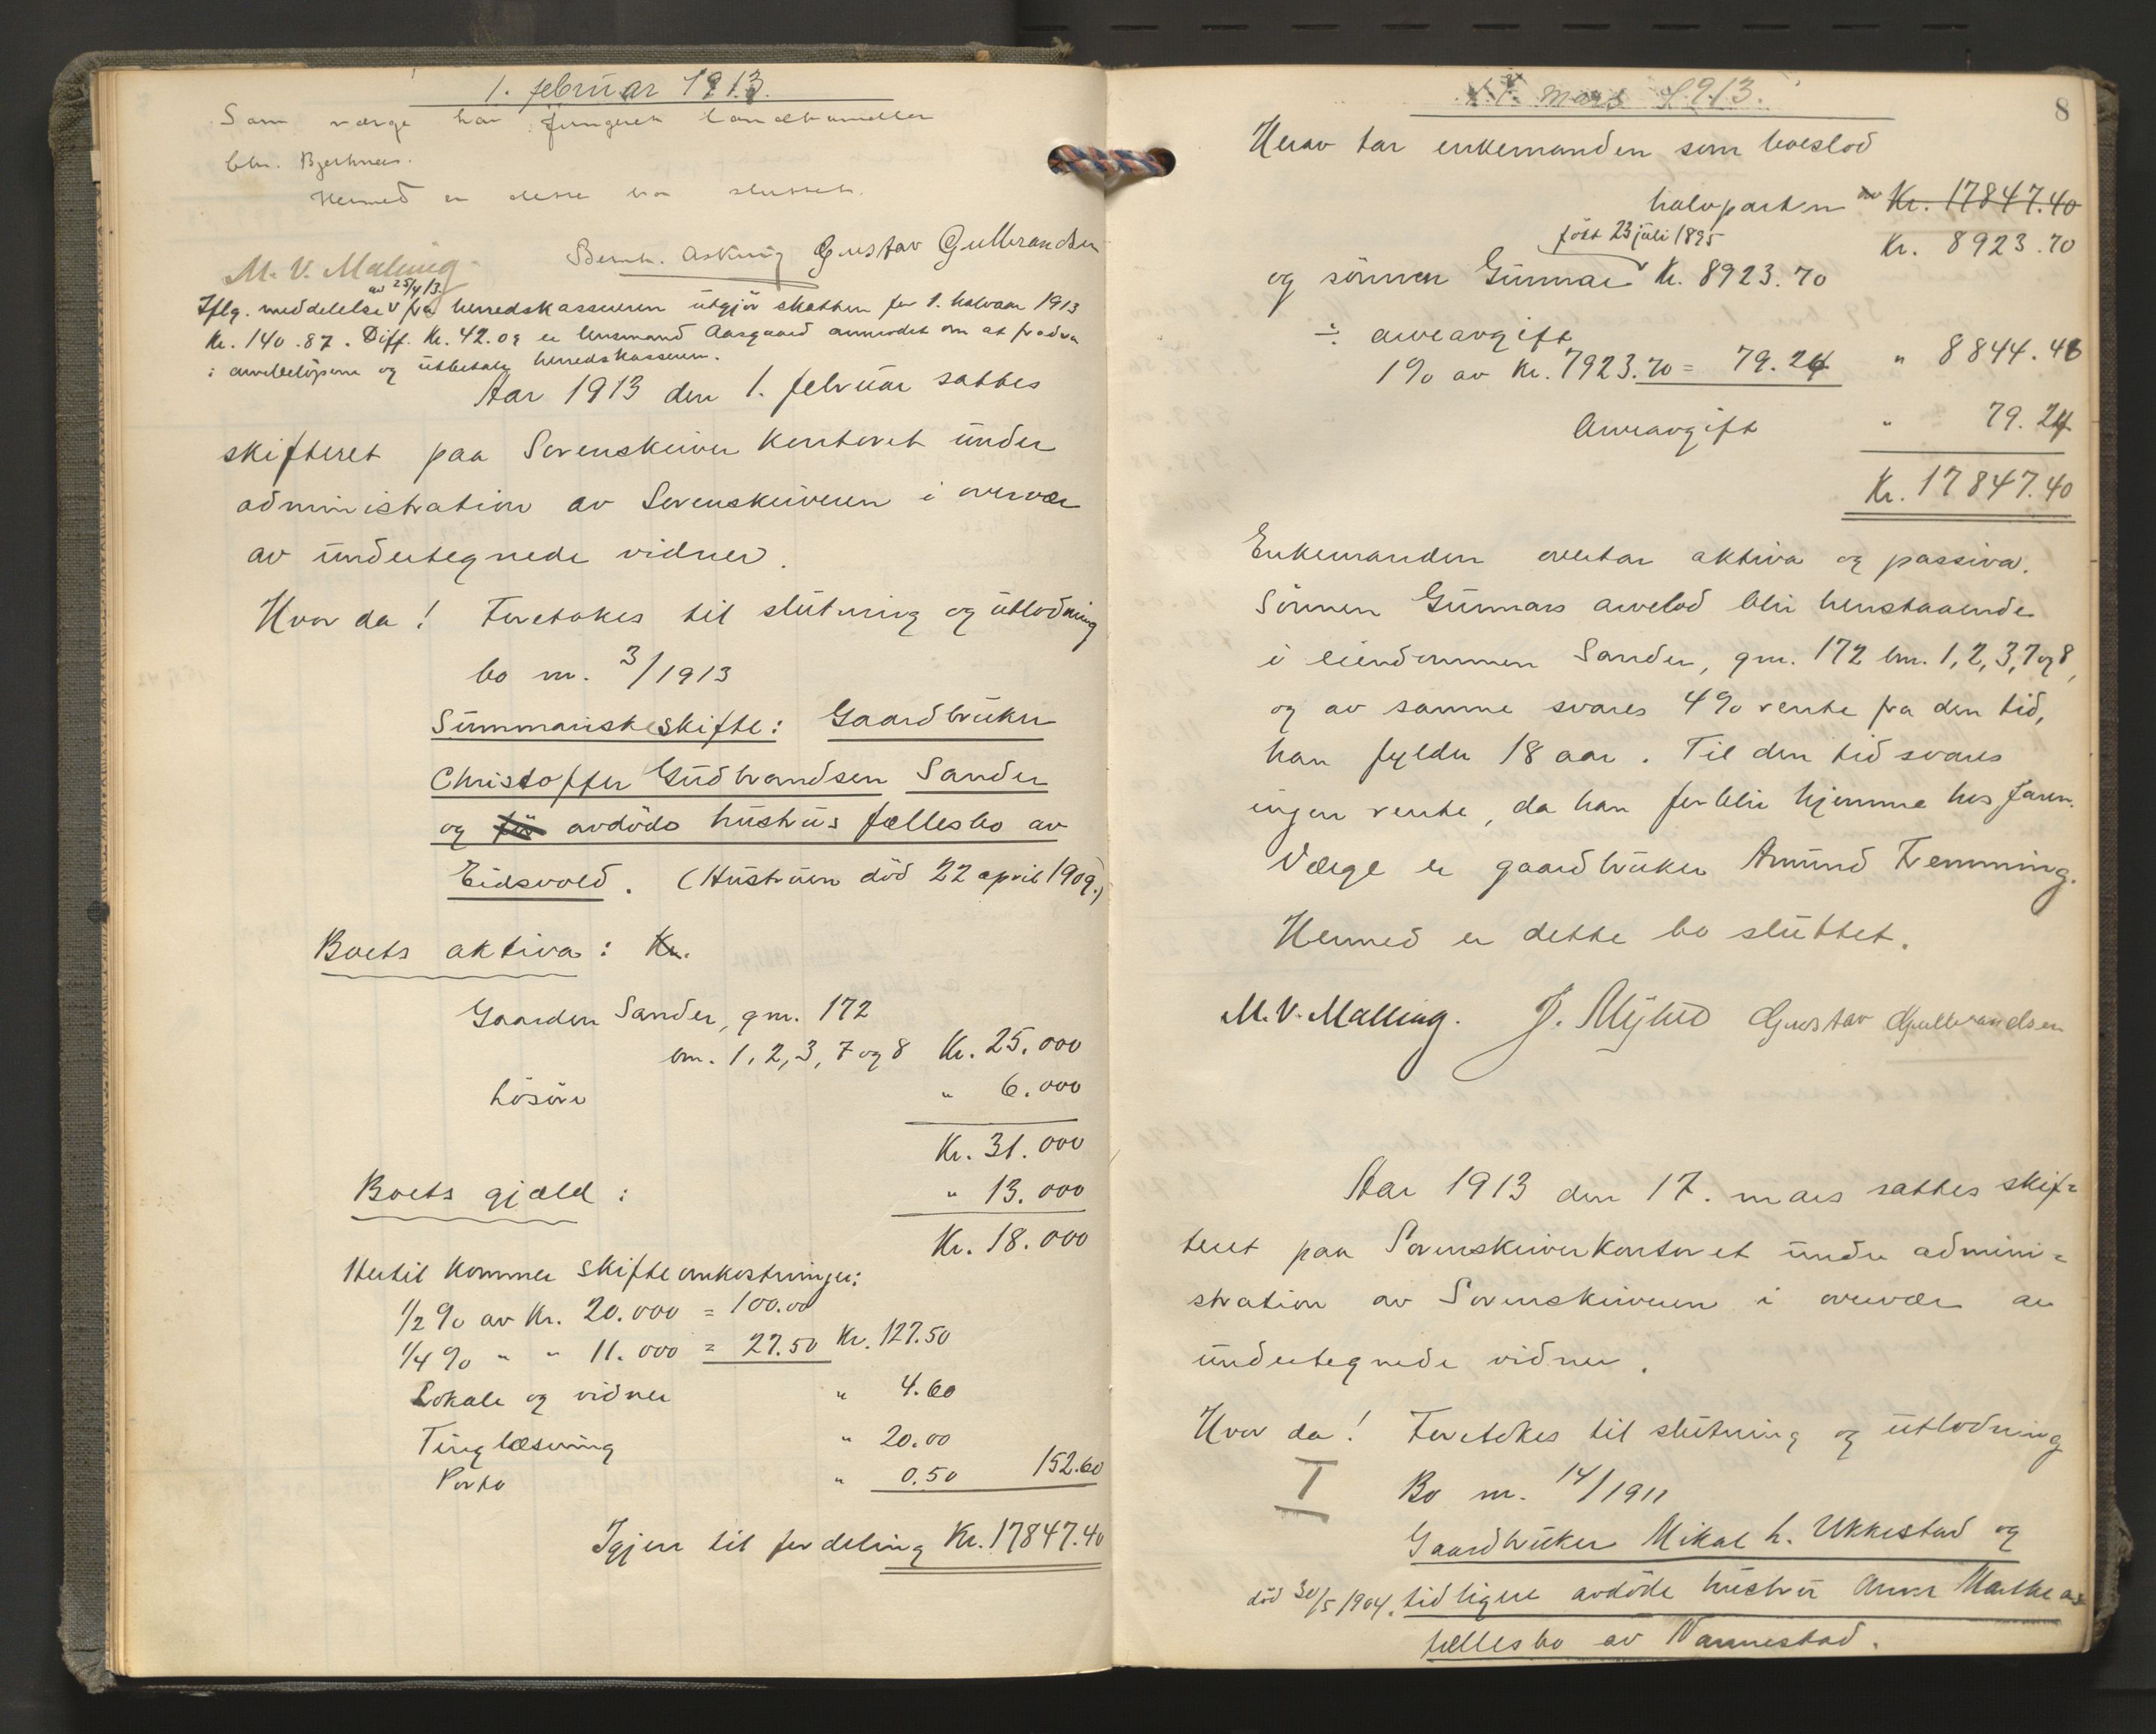 1. februar 1913.
Som værge har fungeret landhandler
Chr. Bjerknes.
Hermed er dette bo sluttet.
M. V. Malling Bernh. Asking Gustav Gulbrandsen
Iflg. meddelelse av 25/4 13 fra herredskasseren utgjør skatten for 1. halvaar 1913
Kr. 140.87. Diff. Kr. 42.09 er lensmand Aasgaard anmodet om at fradra
i arvebeløpene og utbetale herredskasseren.
Aar 1913 den 1. februar sattes
skifteret paa Sorenskriver kontoret under
administration av Sorenskriveren i overvær
av undertegnede vidner.
Hvor da! Foretokes til slutning og utlodning
bo nr. 3/1913
Summarisk skifte: Gaardbruker
Christoffer Gudbrandsen Sander
og avdøde hustrus fællesbo av
Eidsvold. (Hustruen död 22 april 1909.)
Boets aktiva: Kr.
Gaarden Sander, gnr. 172
bnr. 1, 2, 3, 7 og 8 Kr. 25.000
Lösöre " 6.000
Kr. 31.000
Boets gjæld: " 13.000
Kr. 18.000
Hertil kommer skifteomkostninger:
1/2 % av Kr. 20.000 = 100.00
1/4 % " " 11.000 = 27.50 Kr. 127.50
Lokale og vidner " 4.60
Tinglæsning " 20.00
Porto " 0.50 152.60
Igjen til fordeling Kr. 17847.40
17. mars 1913.
8
Herav tar enkemanden som boeslod
halvparten av Kr. 17847.40
Kr. 8923.70
født 23 juli 1895
og sönnen Gunnar Kr. 8923.70
÷ arveavgift
1% av Kr. 7923.70 = 79.24 " 8844.46
Arveavgift " 79.24
Kr. 17847.40
Enkemanden overtar aktiva og passiva.
Sönnen Gunnars arvelod blir henstaaende
i eiendommen Sander, gnr. 172 bnr. 1, 2, 3, 7 og 8,
og av samme svares 4% rente fra den tid,
han fylder 18 aar. Til den tid svares
ingen rente, da han forblir hjemme hos faren.
Værge er gaardbruker Amund Femming.
Hermed er dette bo sluttet.
M. V. Malling. J. Myhrd Gustav Gulbrandsen
Aar 1913 den 17. mars sattes skif=
teret paa Sorenskriverkontoret under admini=
stration av Sorenskriveren i overvær av
undertegnede vidner.
Hvor da! Foretokes til slutning og utlodning
I Bo nr. 14/1911
Gaardbruker Mikal H. Ukkestad og
död 30/5 1904. tidligere avdöde hustru Anne Marthea's
fællesbo av Nannestad.